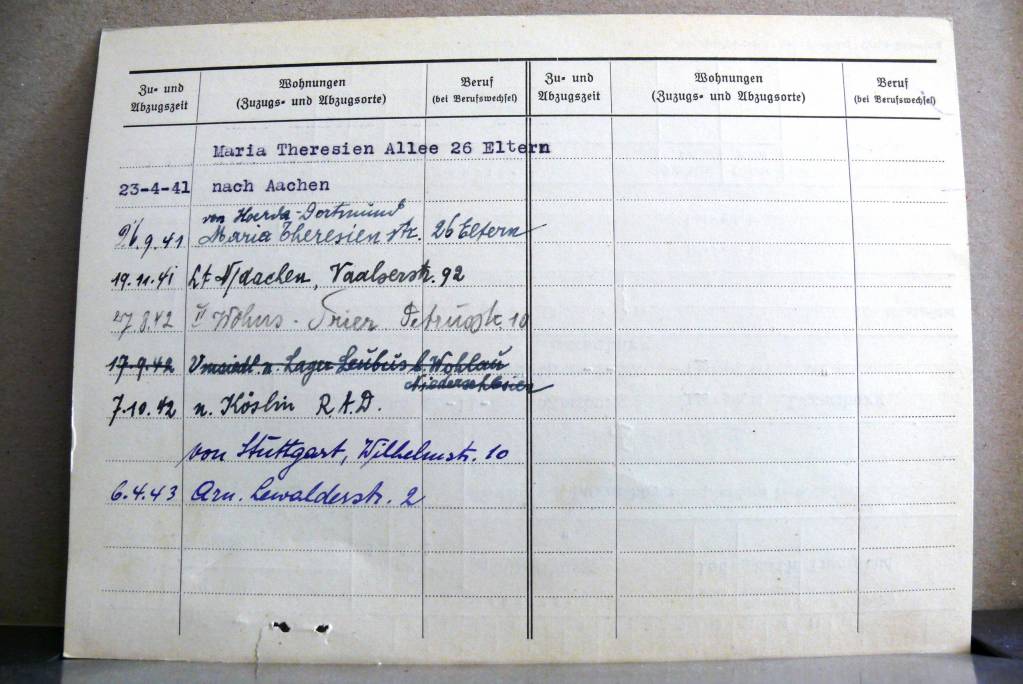 Zu- und Abzugszeit
Wohnungen
(Zuzugs- und Abzugsorte)
Beruf
(bei Berufswechsel)
Zu- und Abzugszeit
Wohnungen
(Zuzugs- und Abzugsorte)
Beruf
(bei Berufswechsel)
Maria Theresien Allee 26 Eltern
23-4-41 nach Aachen
von Hoerde-Dortmund
26.9.41 Maria Theresien str. 26 Eltern
19.11.41 Aachen, Vaalserstr. 92
27.8.42 II Wohns - Trier Petrusstr. 10
17.9.42 Umsiedl. n. Lager Leubus b. Wohlau
Niederschlesien
7.10.42 n. Köslin R.A.D.
von Stuttgart, Wilhelmstr. 10
6.4.43 Arn. Lewalderstr. 2